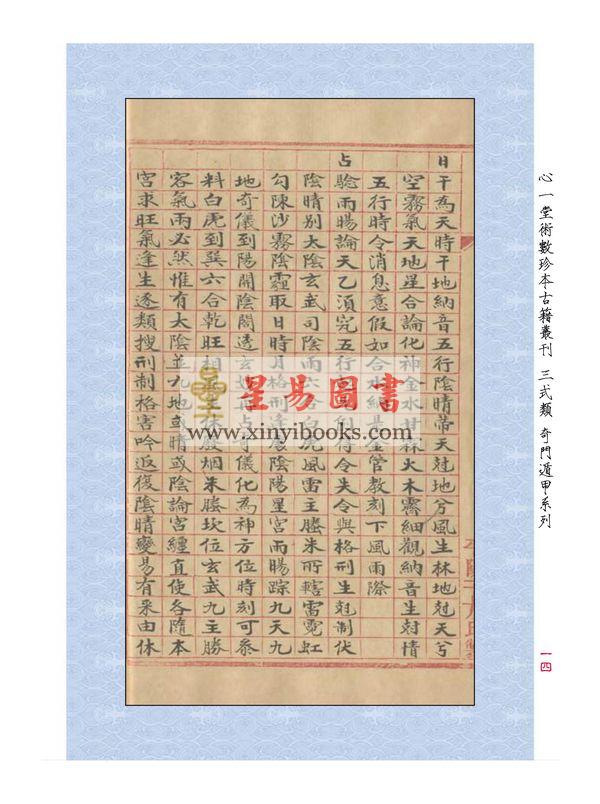 心一堂術數珍本古籍叢刊 三式類 奇門遁甲系列
一四
日干為天時干地納音五行陰晴帝天尅地兮風生林地尅天兮
空霧氣天地星合論化神金水甘林火木霽細觀納音生尅情
五行時令消息意假如合水納音金管教刻下風雨際
占驗雨暘論天乙須究五行
得令失令與格刑生尅制伏
陰晴別太陰玄武司陰雨六合白虎風雷主螣朱所轄雷霓虹
勾陳沙霧陰霾取日時月格刑逢
陰陽星宮雨暘踪九天九
地奇儀到陽開陰闔透玄
占奇儀化為神方位時刻可叅
料白虎到巽六合乾旺相
烟朱螣坎位玄武九主勝
客氣雨必然惟有太陰並九地或晴或陰論宮纏直使各隨本
宮求旺氣逢生逐類搜刑制格害吟返復陰晴變易有釆由休
星易圖書
www.xinyibooks.com